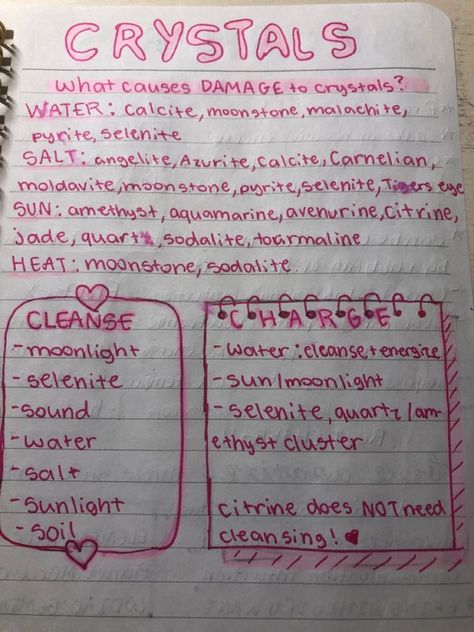 CRYSTALS
What causes DAMAGE to crystals?
WATER: Calcite, moonstone, malachite,
pyrite, selenite
SALT: angelite, Azurite, Calcite, Carnelian,
moldavite, moonstone, pyrite, selenite, Tigers eye
SUN: amethyst, aquamarine, avenurine, citrine,
jade, quartz, sodalite, tourmaline
HEAT: moonstone, sodalite
CLEANSE
-moonlight
-selenite
-sound
-water
-salt
-sunlight
-soil
CHARGE
-water: cleanse + energize
-sun/moonlight
-selenite, quartz/am-
ethyst cluster
citrine does NOT need
cleansing!